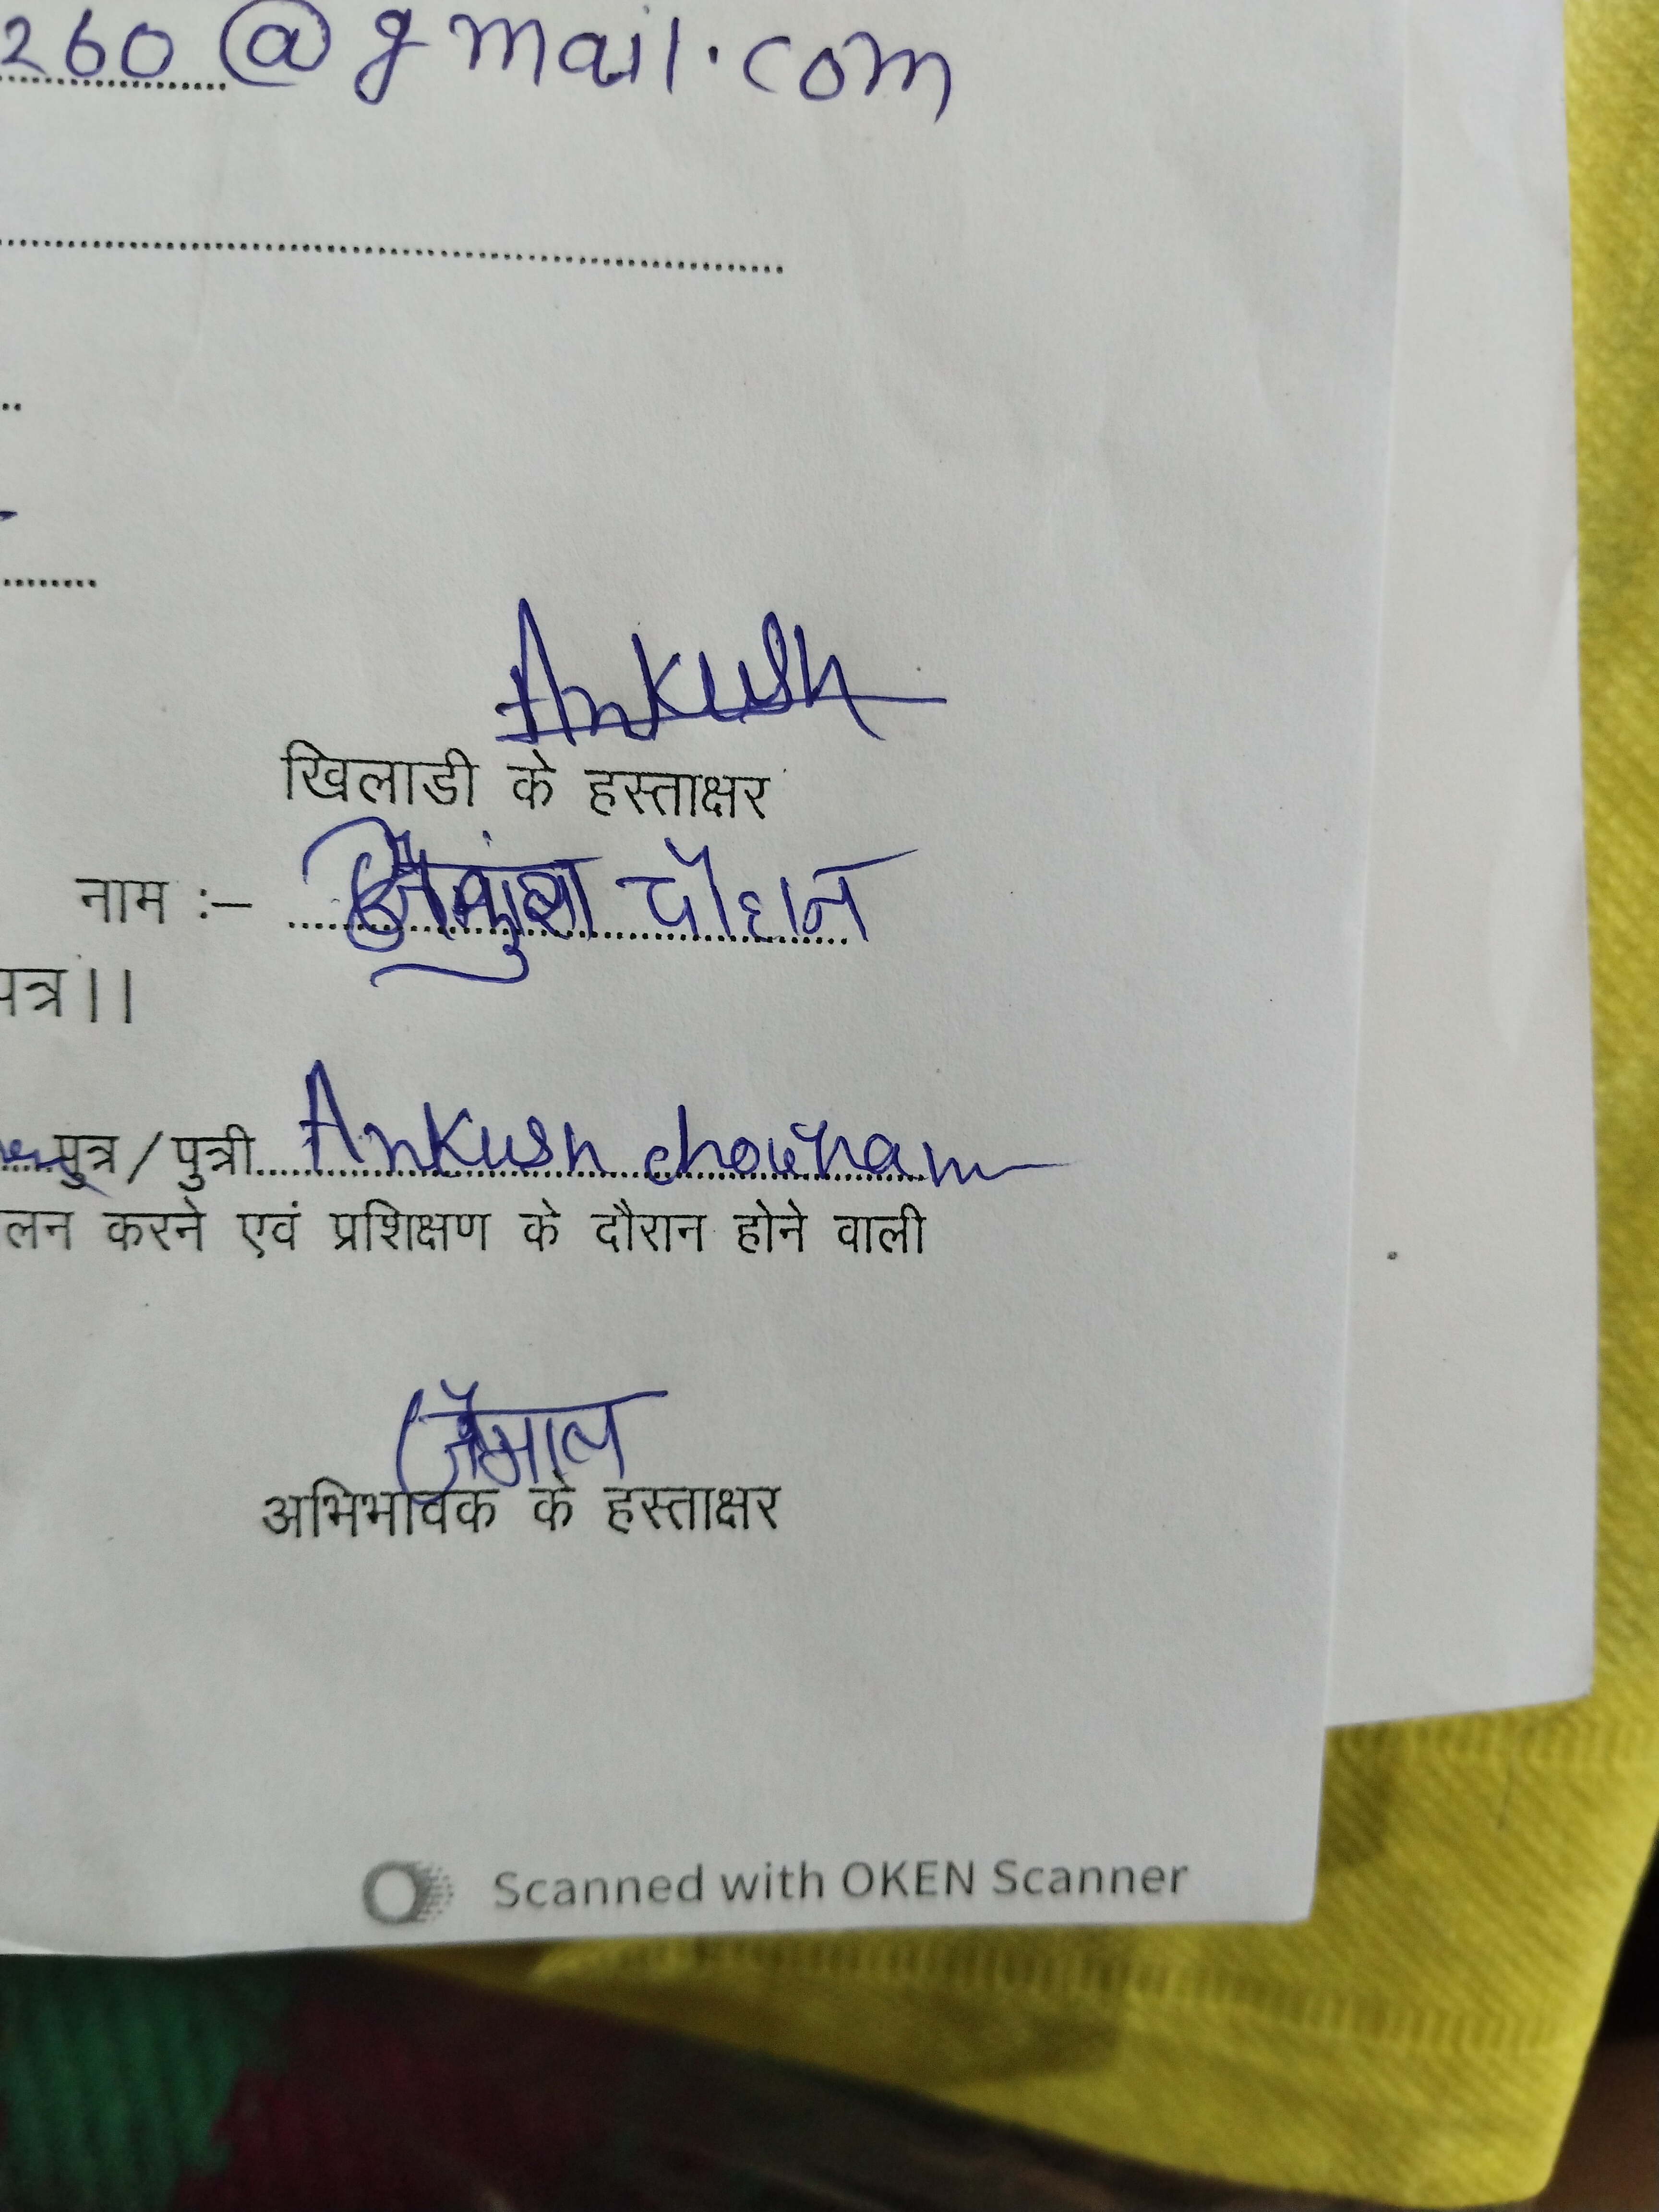 260@gmail.com
Ankush
खिलाडी के हस्ताक्षर
नाम :– चौहान
पत्र।।
पुत्र/पुत्री Ankush chouhan
लन करने एवं प्रशिक्षण के दौरान होने वाली
अभिभावक के हस्ताक्षर
Scanned with OKEN Scanner